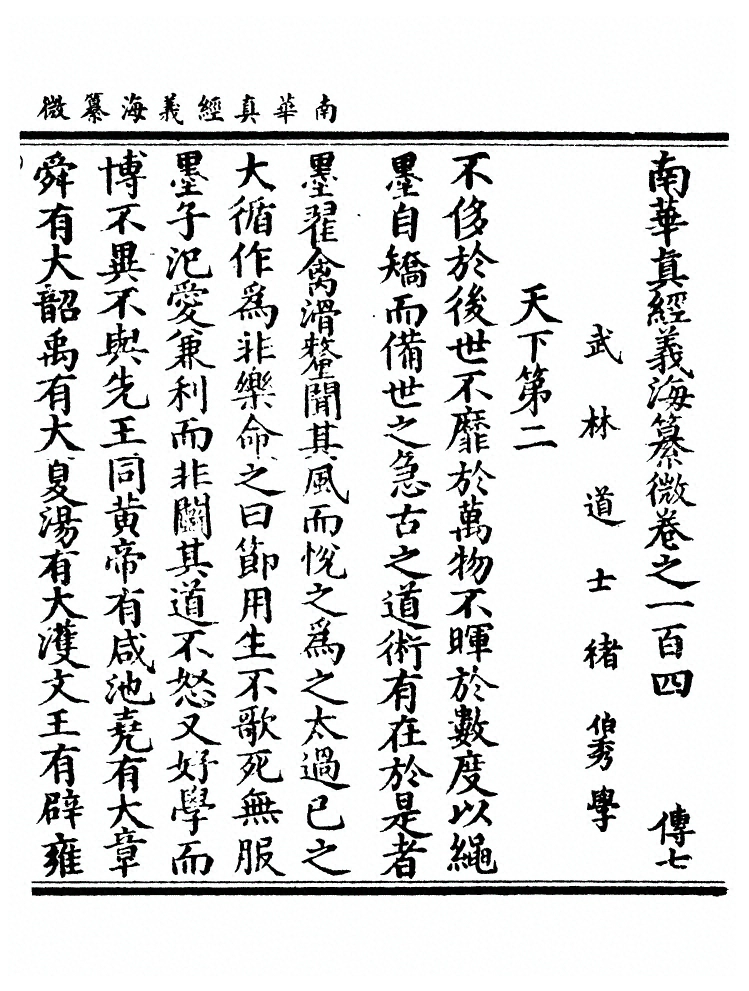 南華真經義海纂微
南華眞經義海纂微卷之一百四 傳七
武林道士褚伯秀學
天下第二
不侈於後世不靡於萬物不暉於數度以繩
墨自矯而備世之急古之道術有在於是者
墨翟禽滑釐聞其風而悅之爲之太過已之
大循作爲非樂命之曰節用生不歌死無服
墨子氾愛兼利而非鬭其道不怒又好學而
博不異不與先王同黃帝有咸池堯有大章
舜有大韶禹有大夏湯有大濩文王有辟雍